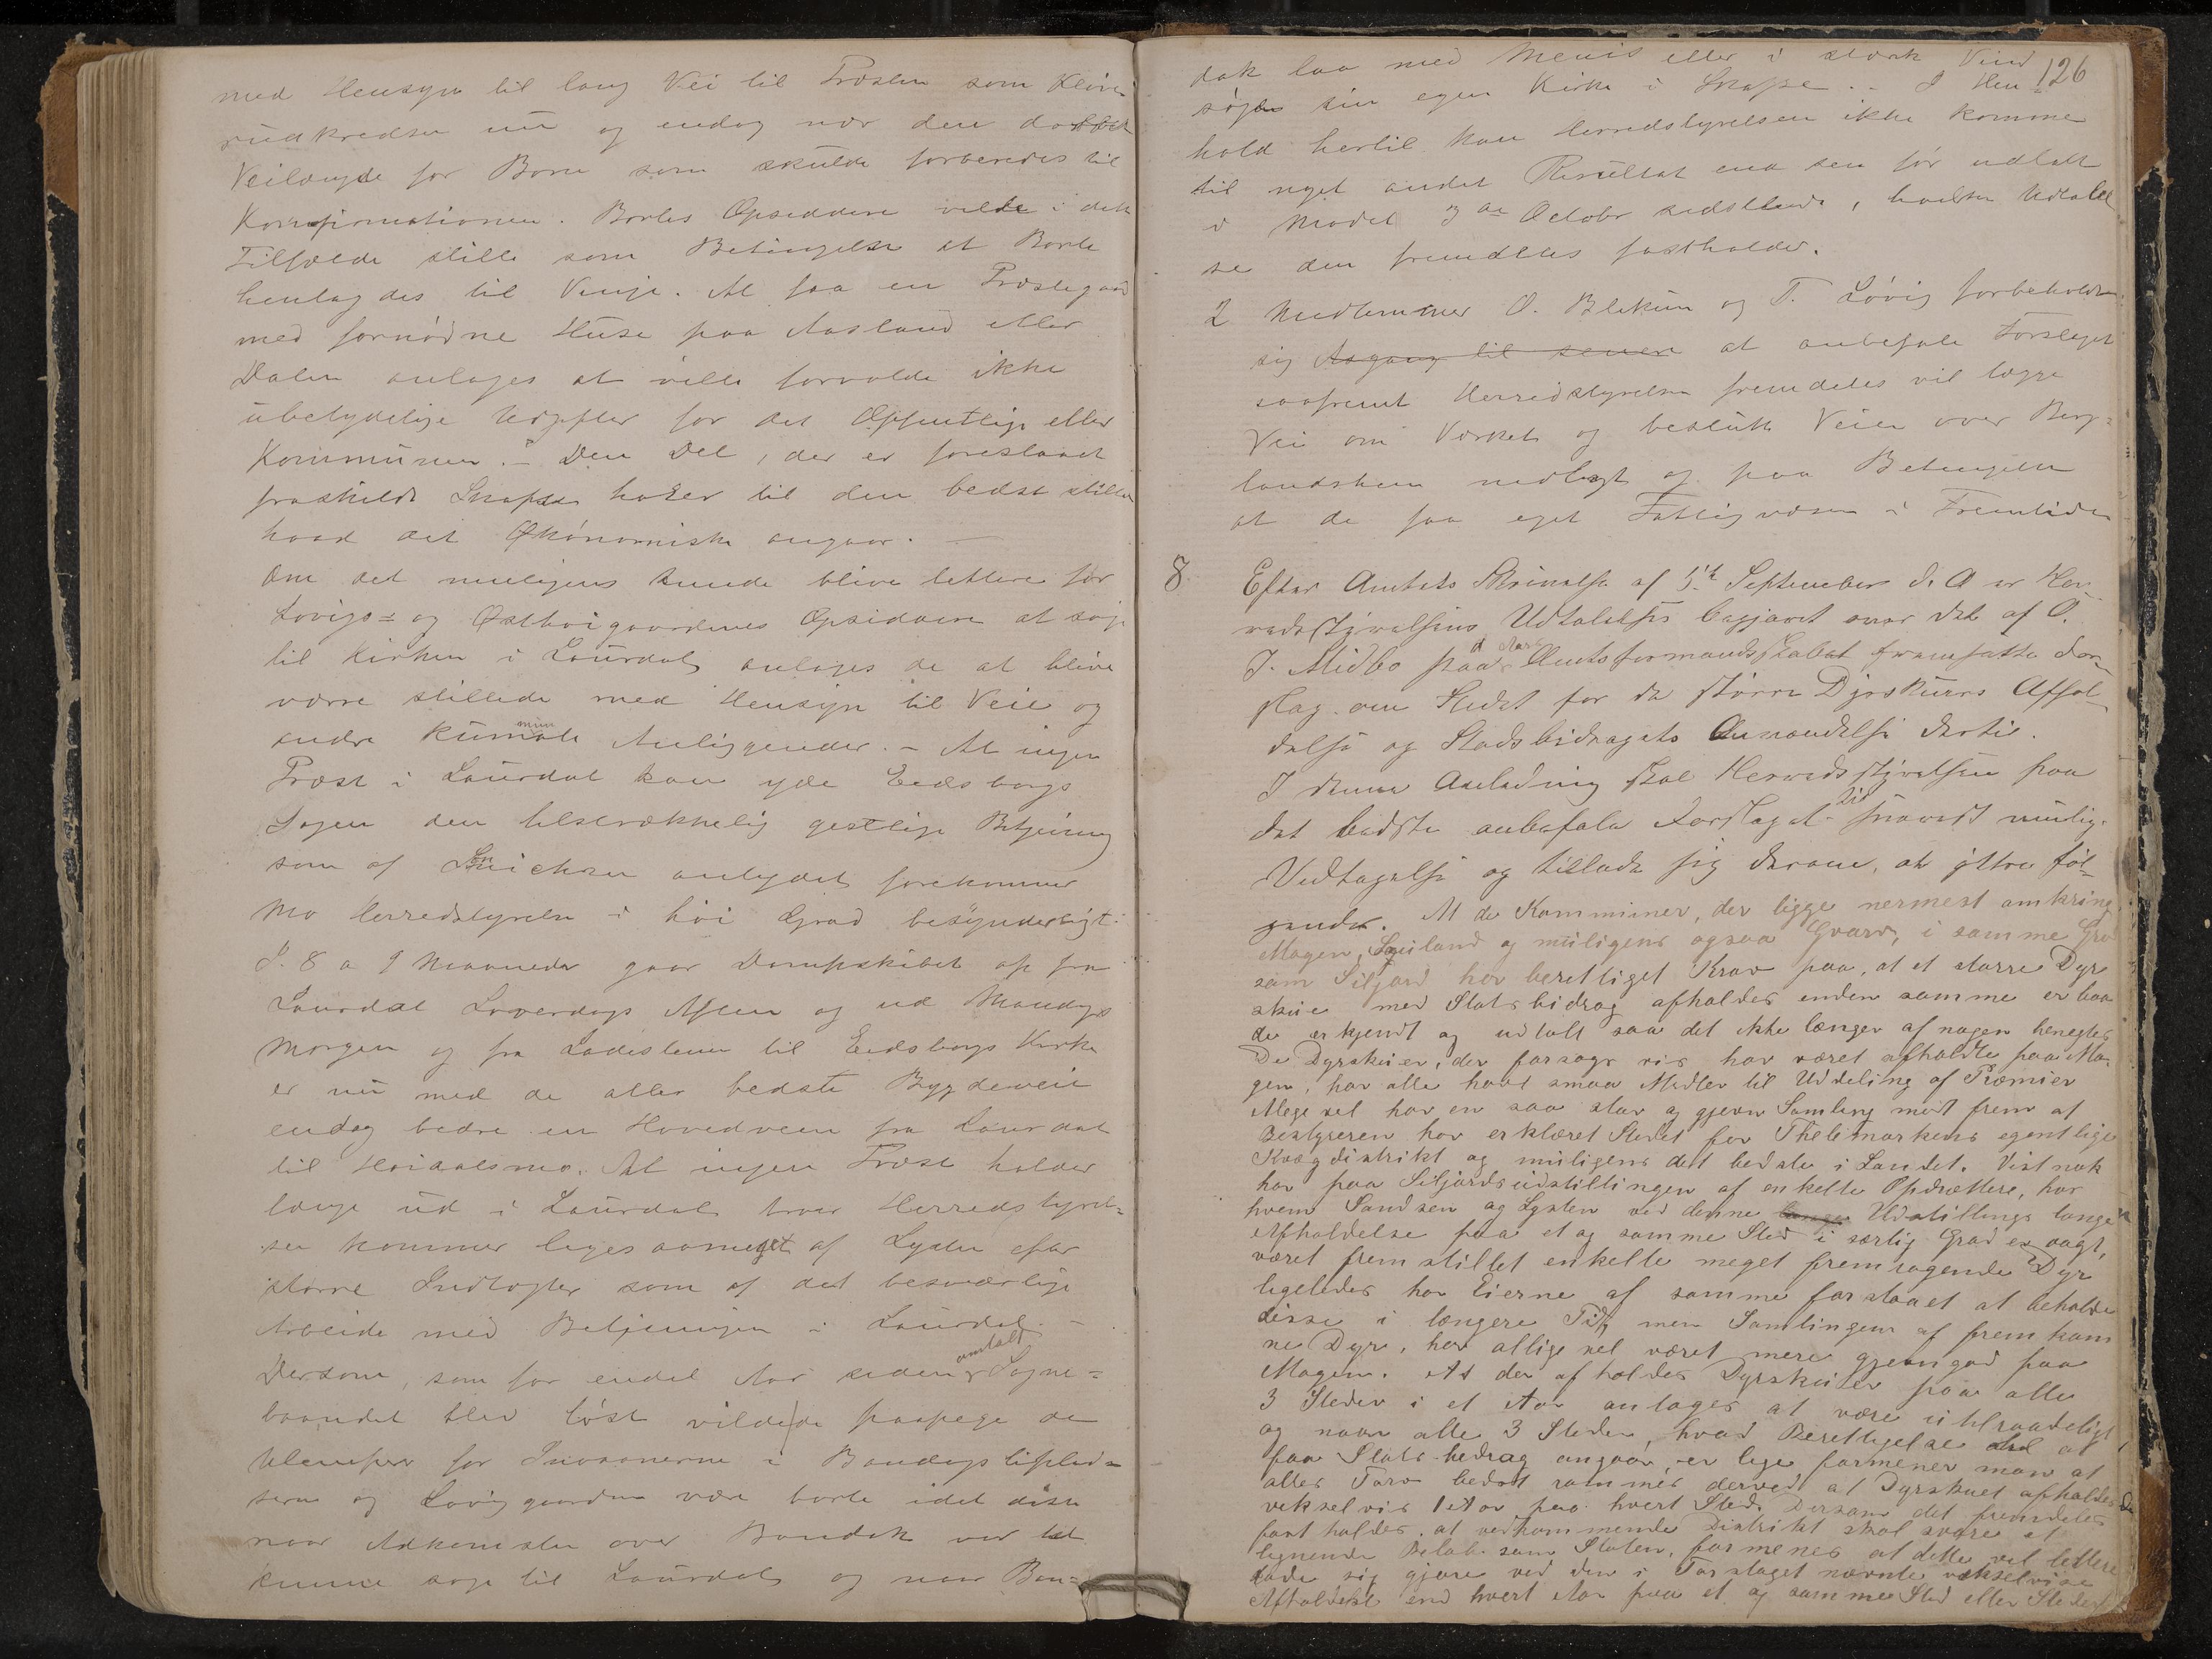 med Hensyn til lang Vei til Præsten som Kleiv
rudkredsen nu og endog nær den dobbelt
Veilængde for Børn som skulde forberedes til
Konfirmationen. Bortes Opsiddere vilde i dette
Tilfælde stille som Betingelse at Borte
henlagdes til Vinje. At faa en Præstegaard
med fornødne Huse paa Aasland eller
Dalen antages at ville forvolde ikke
ubetydelige Udgifter for det Offentlige eller
Kommunen. – Den Del, der er foreslaaet
fraskilt Skafsaa hører til den bedst stillede
hvad det Økonomiske angaar. –
Om det muligens kunde blive lettere for
Lovigs- og Østhoigaardenes Opsiddere at søge
til Kirken i Laurdal antages de at blive
værre stillede med Hensyn til Veie og
andre kumunale Anliggender. – At ingen
Præst i Laurdal kan yde Eidsborgs
Sogn den tilstrækkelig gestlige Betjening
som af antydet forekommer
Mo Herredstyrelse i høi Grad besynderligt.
I 8 a 9 Maaneder gaar Dampskibet op fra
Laurdal Løverdags Aften og ud Mandags
Morgen og fra Ladestenen til Eidsborgs Kirke
er nu med de aller bedste Bygdeveie
endog bedre en Hovedveien fra Laurdal
til Høidalsmo. At ingen Præst holder
længe ud i Laurdal tror Herredstyrel-
sen kommer ligesaameget af Lysten efter
større Indtægter som af det besværlige
Arbeide med Betjeningen i Laurdal. –
Dersom, som for endel Aar siden omtalt Sogne-
baandet blev løst vilde de paapege de
Ulemper for Personerne i Bandagslifled-
serne og Lovig gaardene være borte idet disse
naar Adkomsten over Bandak var let
kunne søge til Laurdal og naar Ban-
126
dak laa med Menis eller i stærk Vind
søge sin egen Kirke i Skafse. – I Hen-
hold hertil kan Herredstyrelsen ikke komme
til noget andet Resultat end den før udtalt
i Mødet 3die October sidstleden, hvilken Udtalel
se den fremdeles fastholder.
2 Medlemmer O. Blekum og T. Lövig forbeholder
sig Adgang til senere at anbefale Forslaget
saafremt Herredstyrelsen fremdeles vil lægge
Vei om Værket og beslutte Veien over Berg-
landsheia nedlagt og paa Betingelse
at de faa eget Fattigvæsen i Fremtiden
8 Efter Amtets Skrivelse af 5te September d. A er Her-
redsstyrelsens Udtalelse begjæret over det af O.
J. Midbø paa d Aars Amtsformandskabet fremsatte For-
slag om Stedet for de større Dyrskuers Afhol-
delse og Stadsbidragets Anvendelse dertil.
I denne Anledning skal Herredsstyrelsen paa
det bedste anbefale Forslaget til snarest mulig
Vedtagelse og tillade sig derom, at yttre føl-
gende. At de Kommuner, der ligge nermest omkring
Mogen, Sauland og muligens ogsaa Gvarv, i samme Grad
som Siljord har berettiget Krav paa, at et større Dyr
skue med Statsbidrag afholdes enden samme er baa
de erkjendt og udtalt saa det ikke længer af nogen benegtes
De Dyrskuer, der forsøgsvis har været afholdte paa Mo-
gen, har alle havt smaa Midler til Uddeling af Præmier
Alligevel har en saa stor og gjevn Samling mødt frem at
Bestyreren har erklæret Stedet for Thelemarkens egentlige
Kvægdistrikt og muligens det bedste i Landet. Vistnok
har paa Siljordsudstillingen af enkelte Opdrættere, hos
hvem Sandsen og Lysten ved denne længe Udstillings lange
Afholdelse paa et og samme Sted i særlig Grad er vagt,
været fremstillet enkelte meget fremragende Dyr
ligeledes har Eierne af samme forstaaet at beholde
disse i længere Tid, men Samlingen af fremkom
ne Dyr, har alligevel været mere gjevngod paa
Mogen. At der afholdes Dyrskuer paa alle
3 Steder i et Aar antages at være utilraadeligt,
og naar alle 3 Steder, hvad Berettigelse til at
faa Statsbedrag angaar, er lige formener man at
alles Tarv bedst rammes derved at Dyrskuet afholdes
vekselvis 1 Aar paa hvert Sted. Dersom det fremdeles
fastholdes, at vedkommende Distrikt skal svare et
lignende Beløb som Staten, formenes at dette vel lettere
lade sig gjøre ved den i Forslaget nævnte vekselvise
Afholdelse end hvert Aar paa et og samme Sted eller Steder